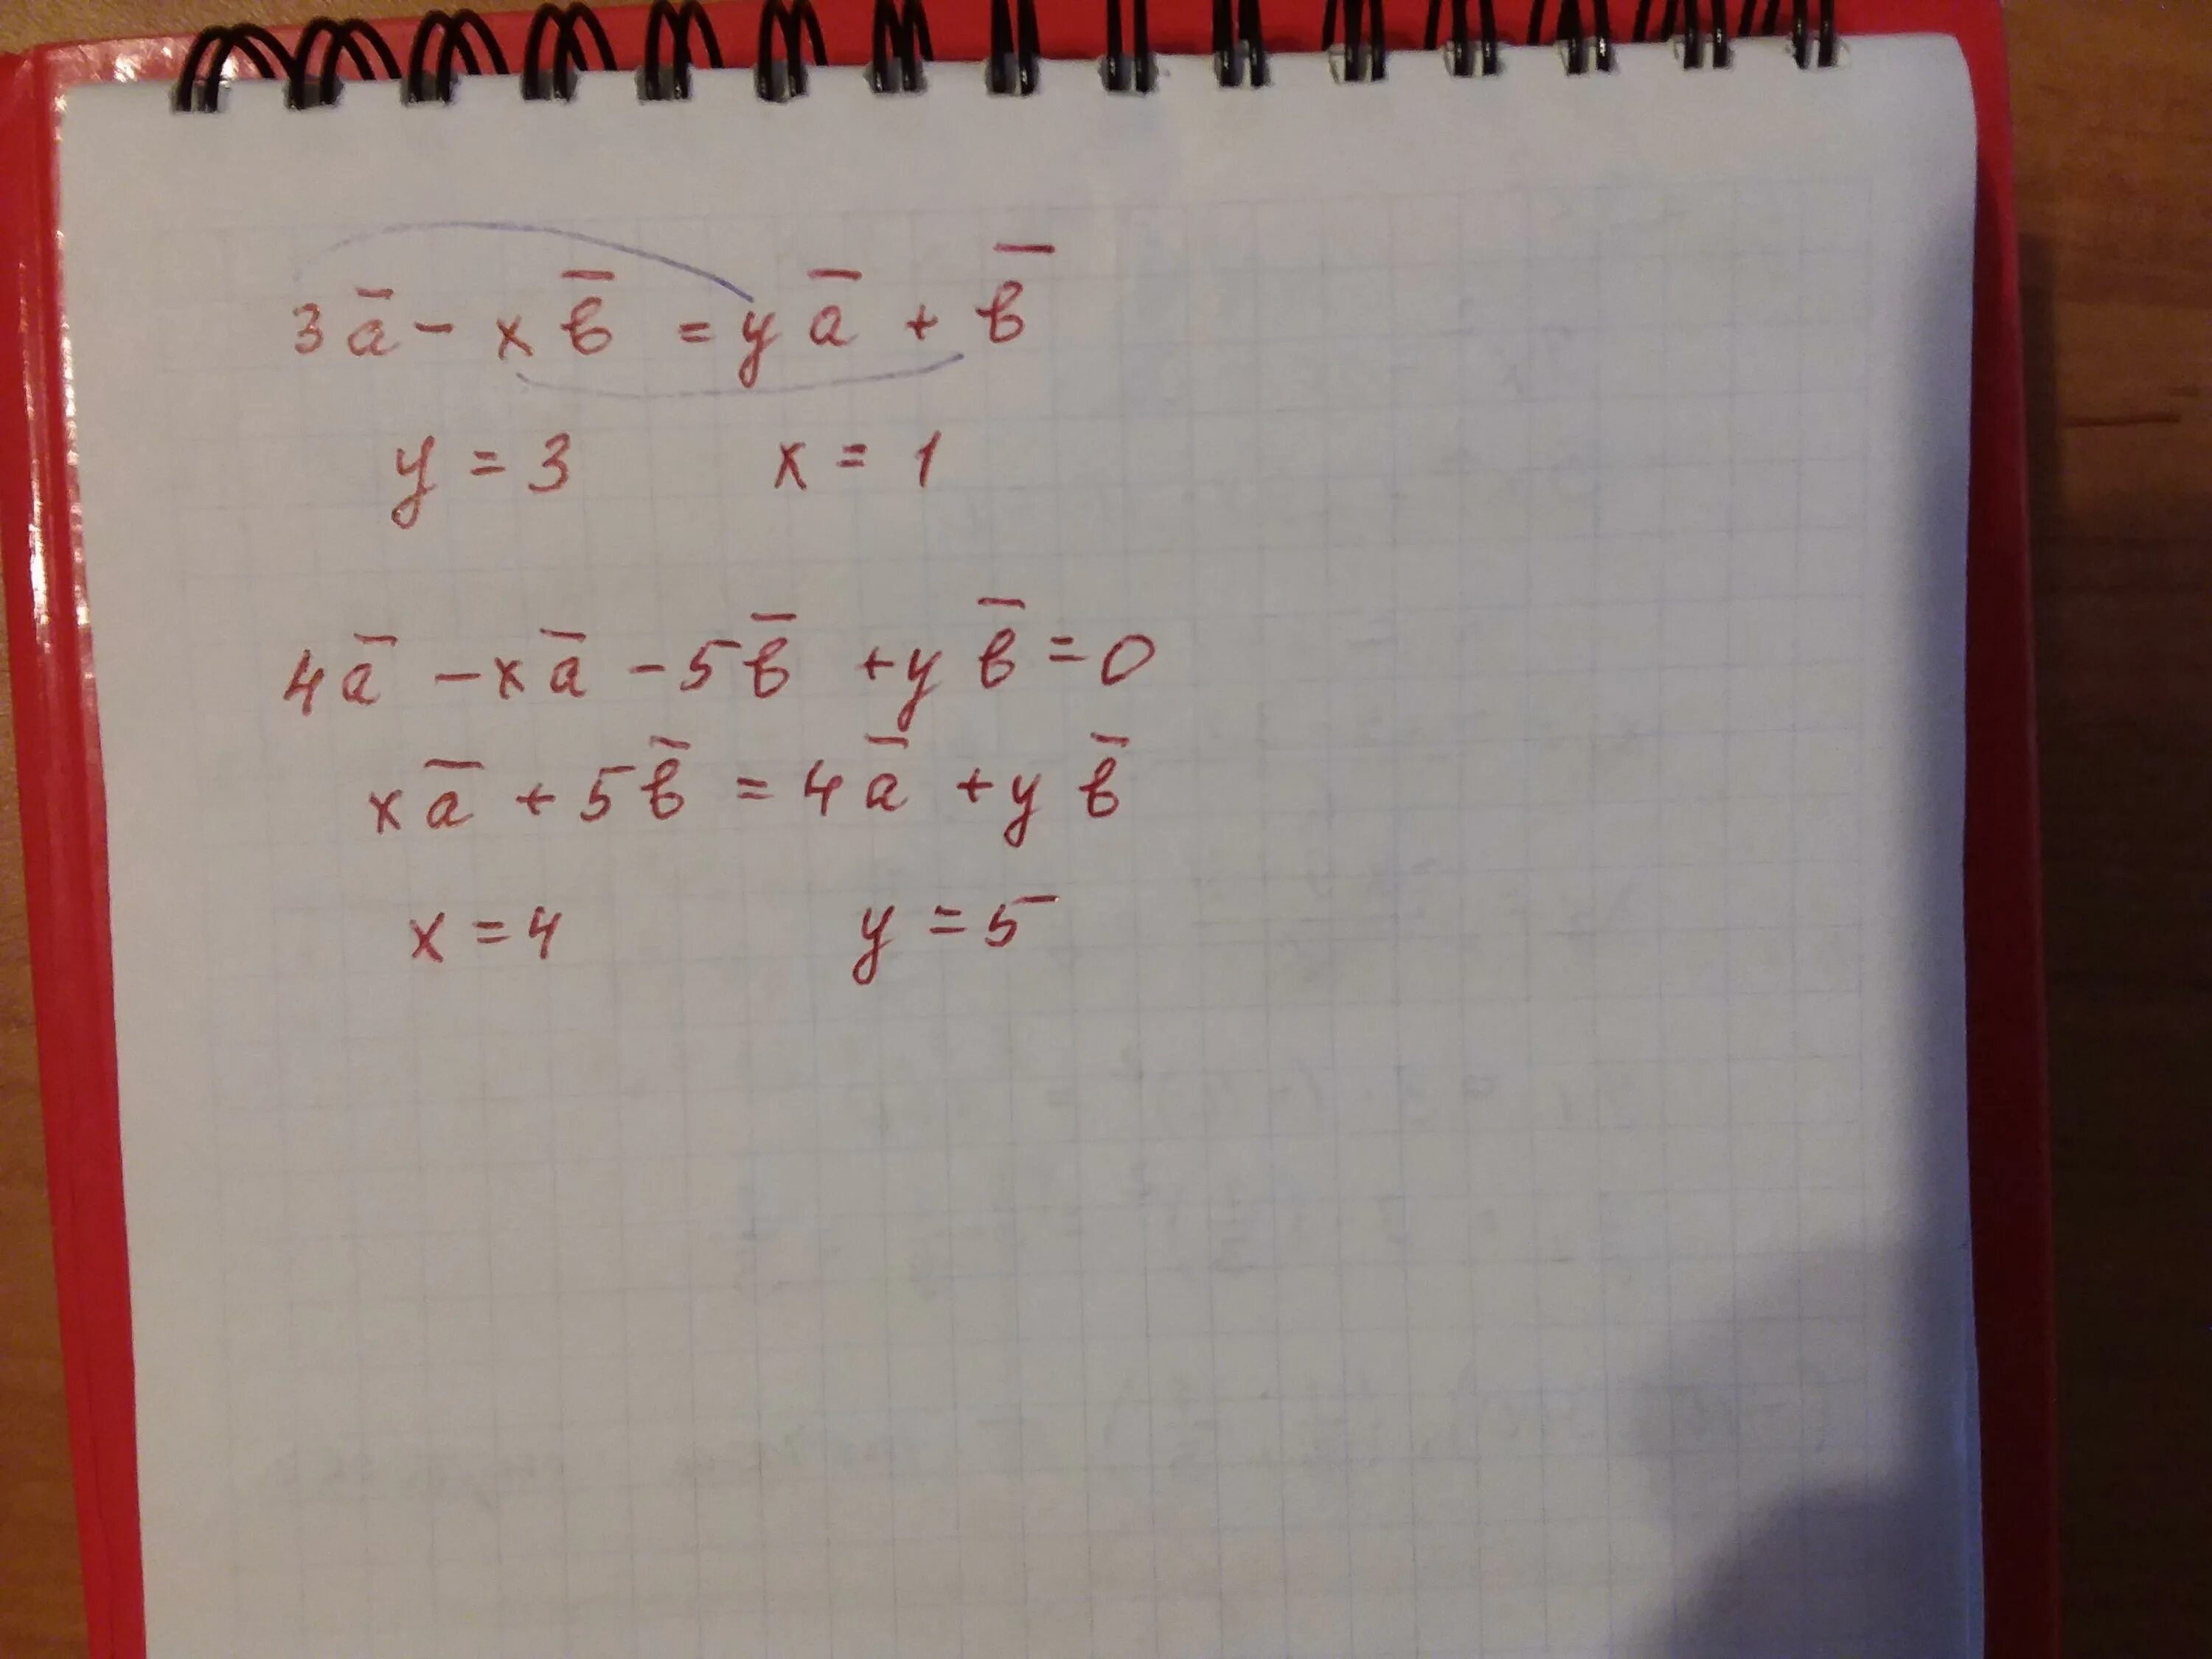 3a̅ - xb̅ = ya̅ + b̅
y = 3 x = 1
4a̅ - xa̅ - 5b̅ + yb̅ = 0
xa̅ + 5b̅ = 4a̅ + yb̅
x = 4 y = 5